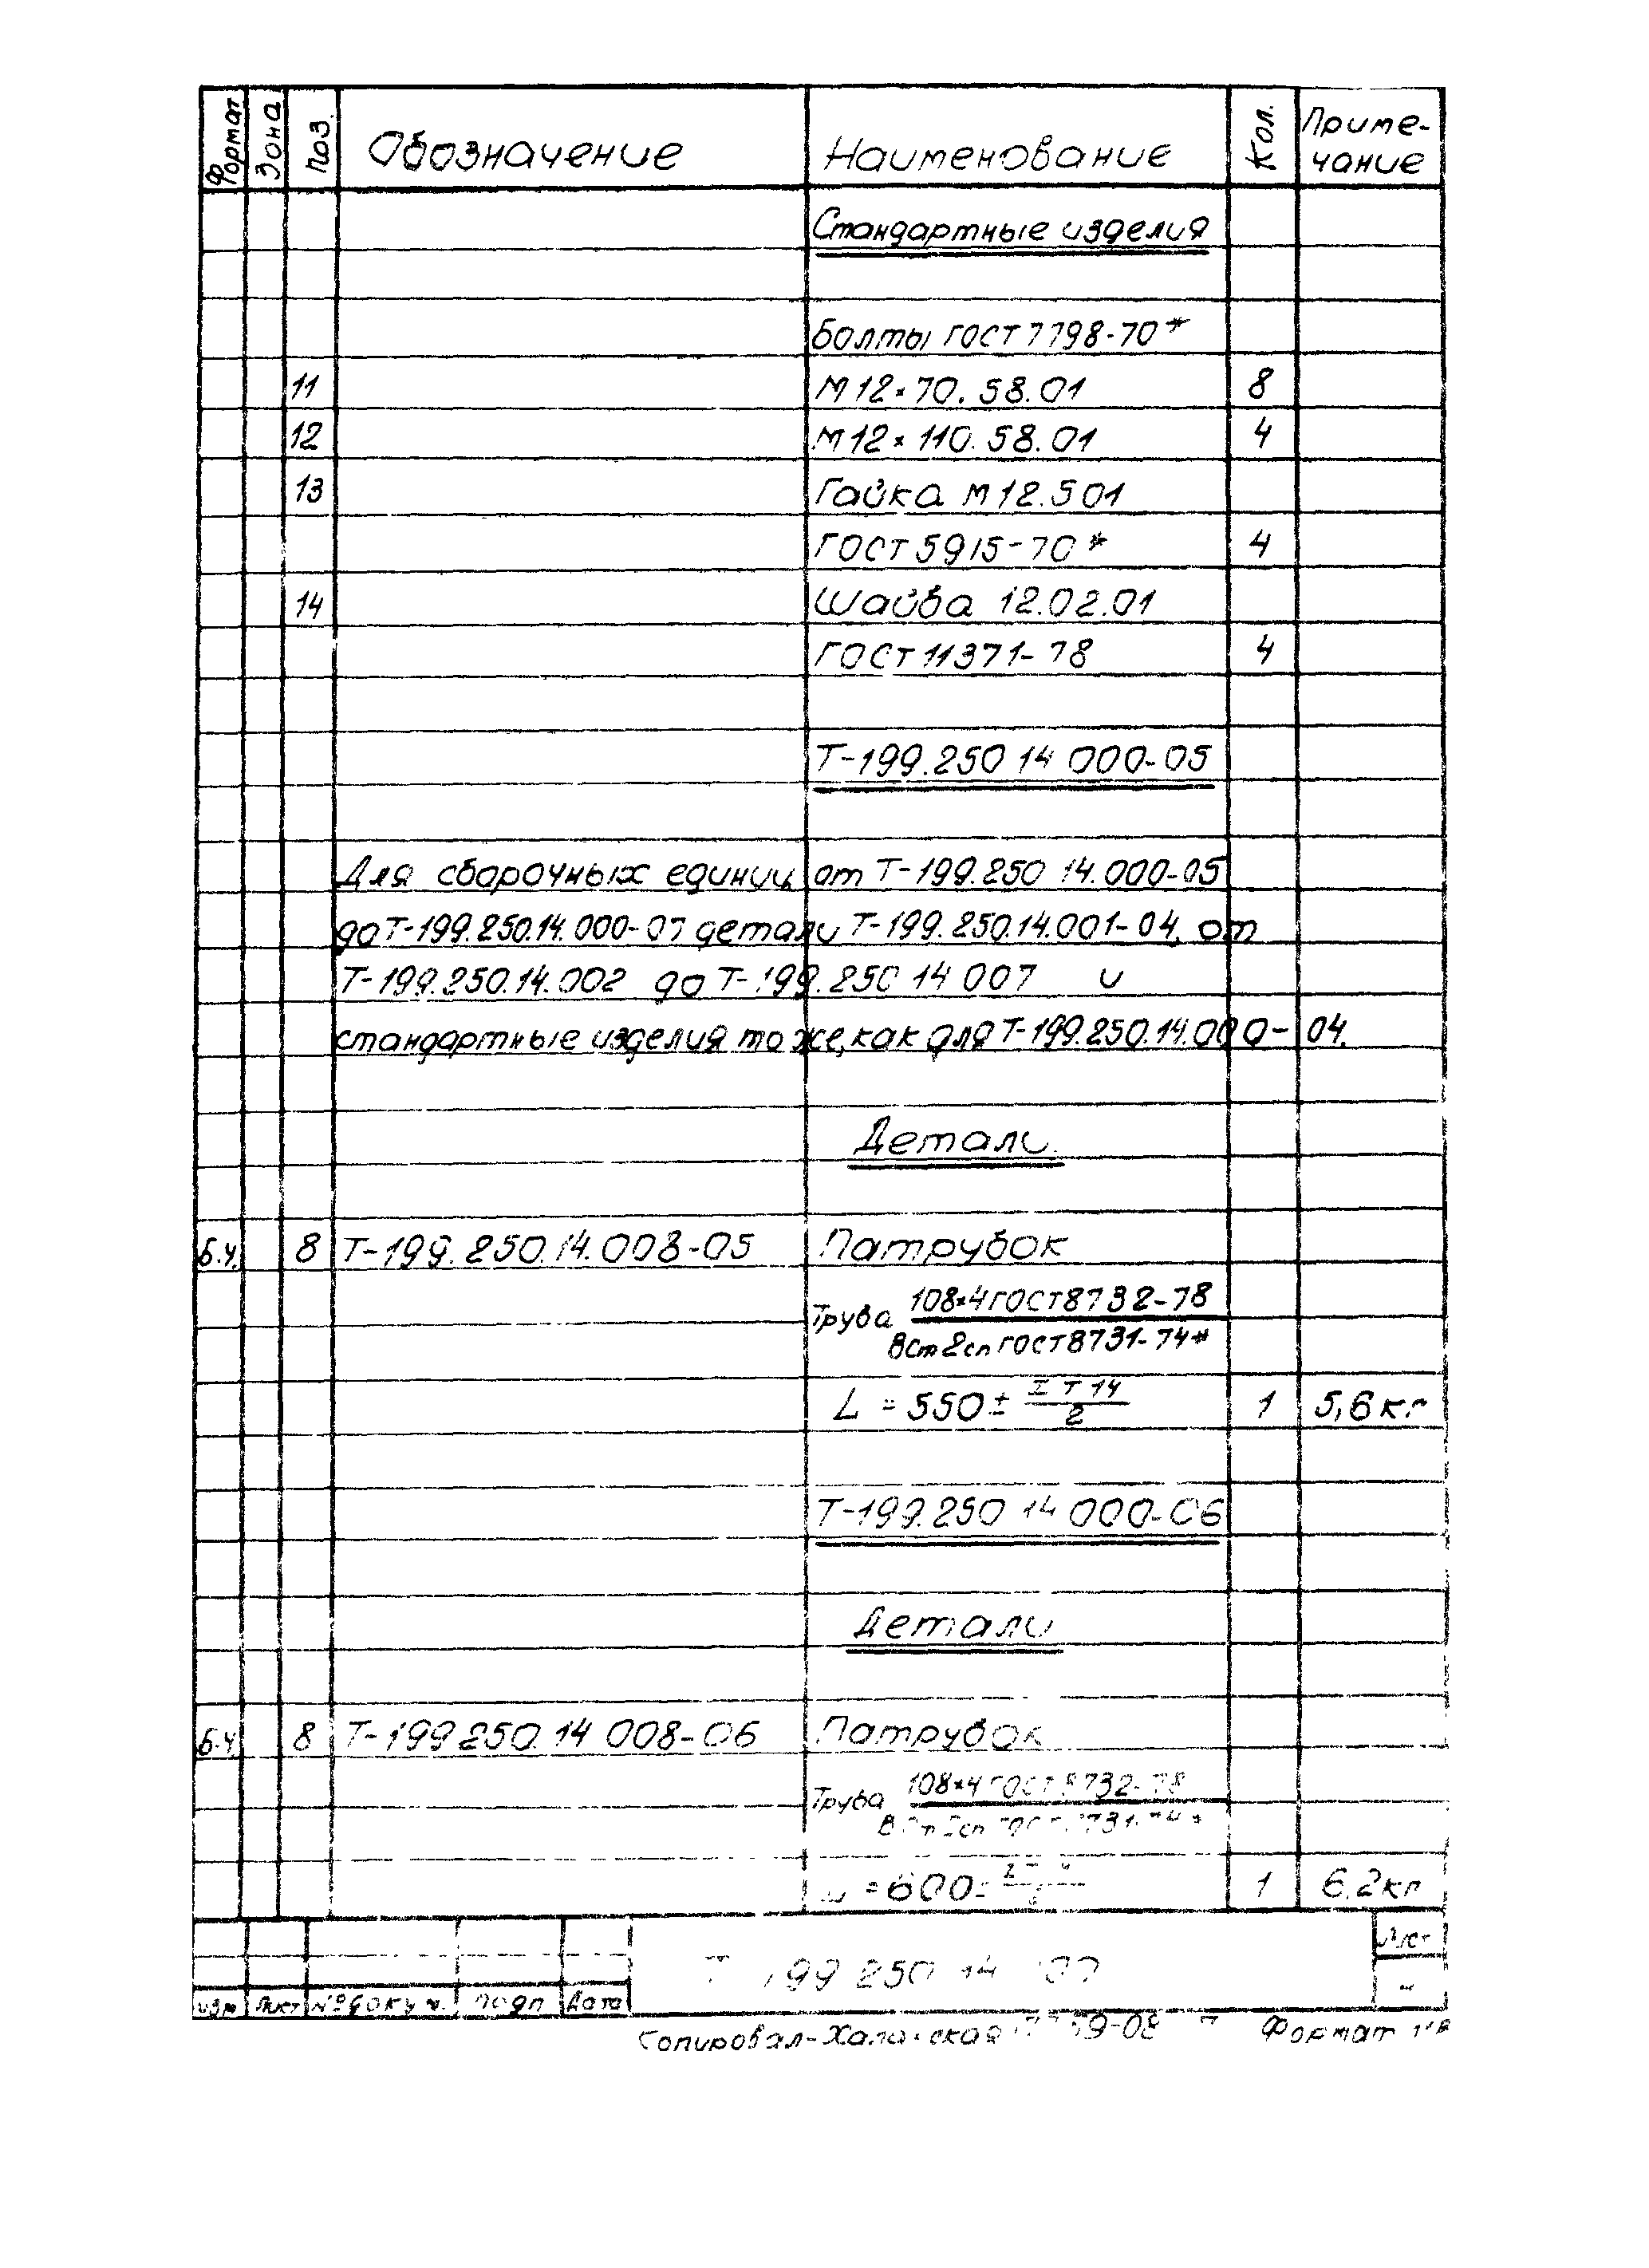 Формат Зона Поз. Обозначение Наименование Кол. Приме-
чание
Стандартные изделия
Болты ГОСТ 7798-70*
11 М12×70.58.01 8
12 М12×110.58.01 4
13 Гайка М12.501
ГОСТ 5915-70* 4
14 Шайба 12.02.01
ГОСТ 11371-78 4
Т-199.250 14 000-05
Для сборочных единиц от Т-199.250 14.000-05
до Т-199.250.14.000-07 детали Т-199.250.14.001-04, от
Т-199.250.14.002 до Т-199.250 14 007 и
стандартные изделия то же, как для Т-199.250.14.000-04.
Детали
Б.Ч. 8 Т-199.250.14.008-05 Патрубок
Труба 108×4 ГОСТ 8732-78
ВСт2сп ГОСТ 8731-74*
L = 550 ± IT14/2 1 5,6 кг
Т-199.250 14 000-06
Детали
Б.Ч. 8 Т-199 250.14 008-06 Патрубок
Труба 108×4 ГОСТ 8732-78
ВСт2сп ГОСТ 8731-74*
=600± 1 6.2 кг
Т 199 250 14
Лист
Изм Лист № докум. Подп Дата
Копировал- Формат